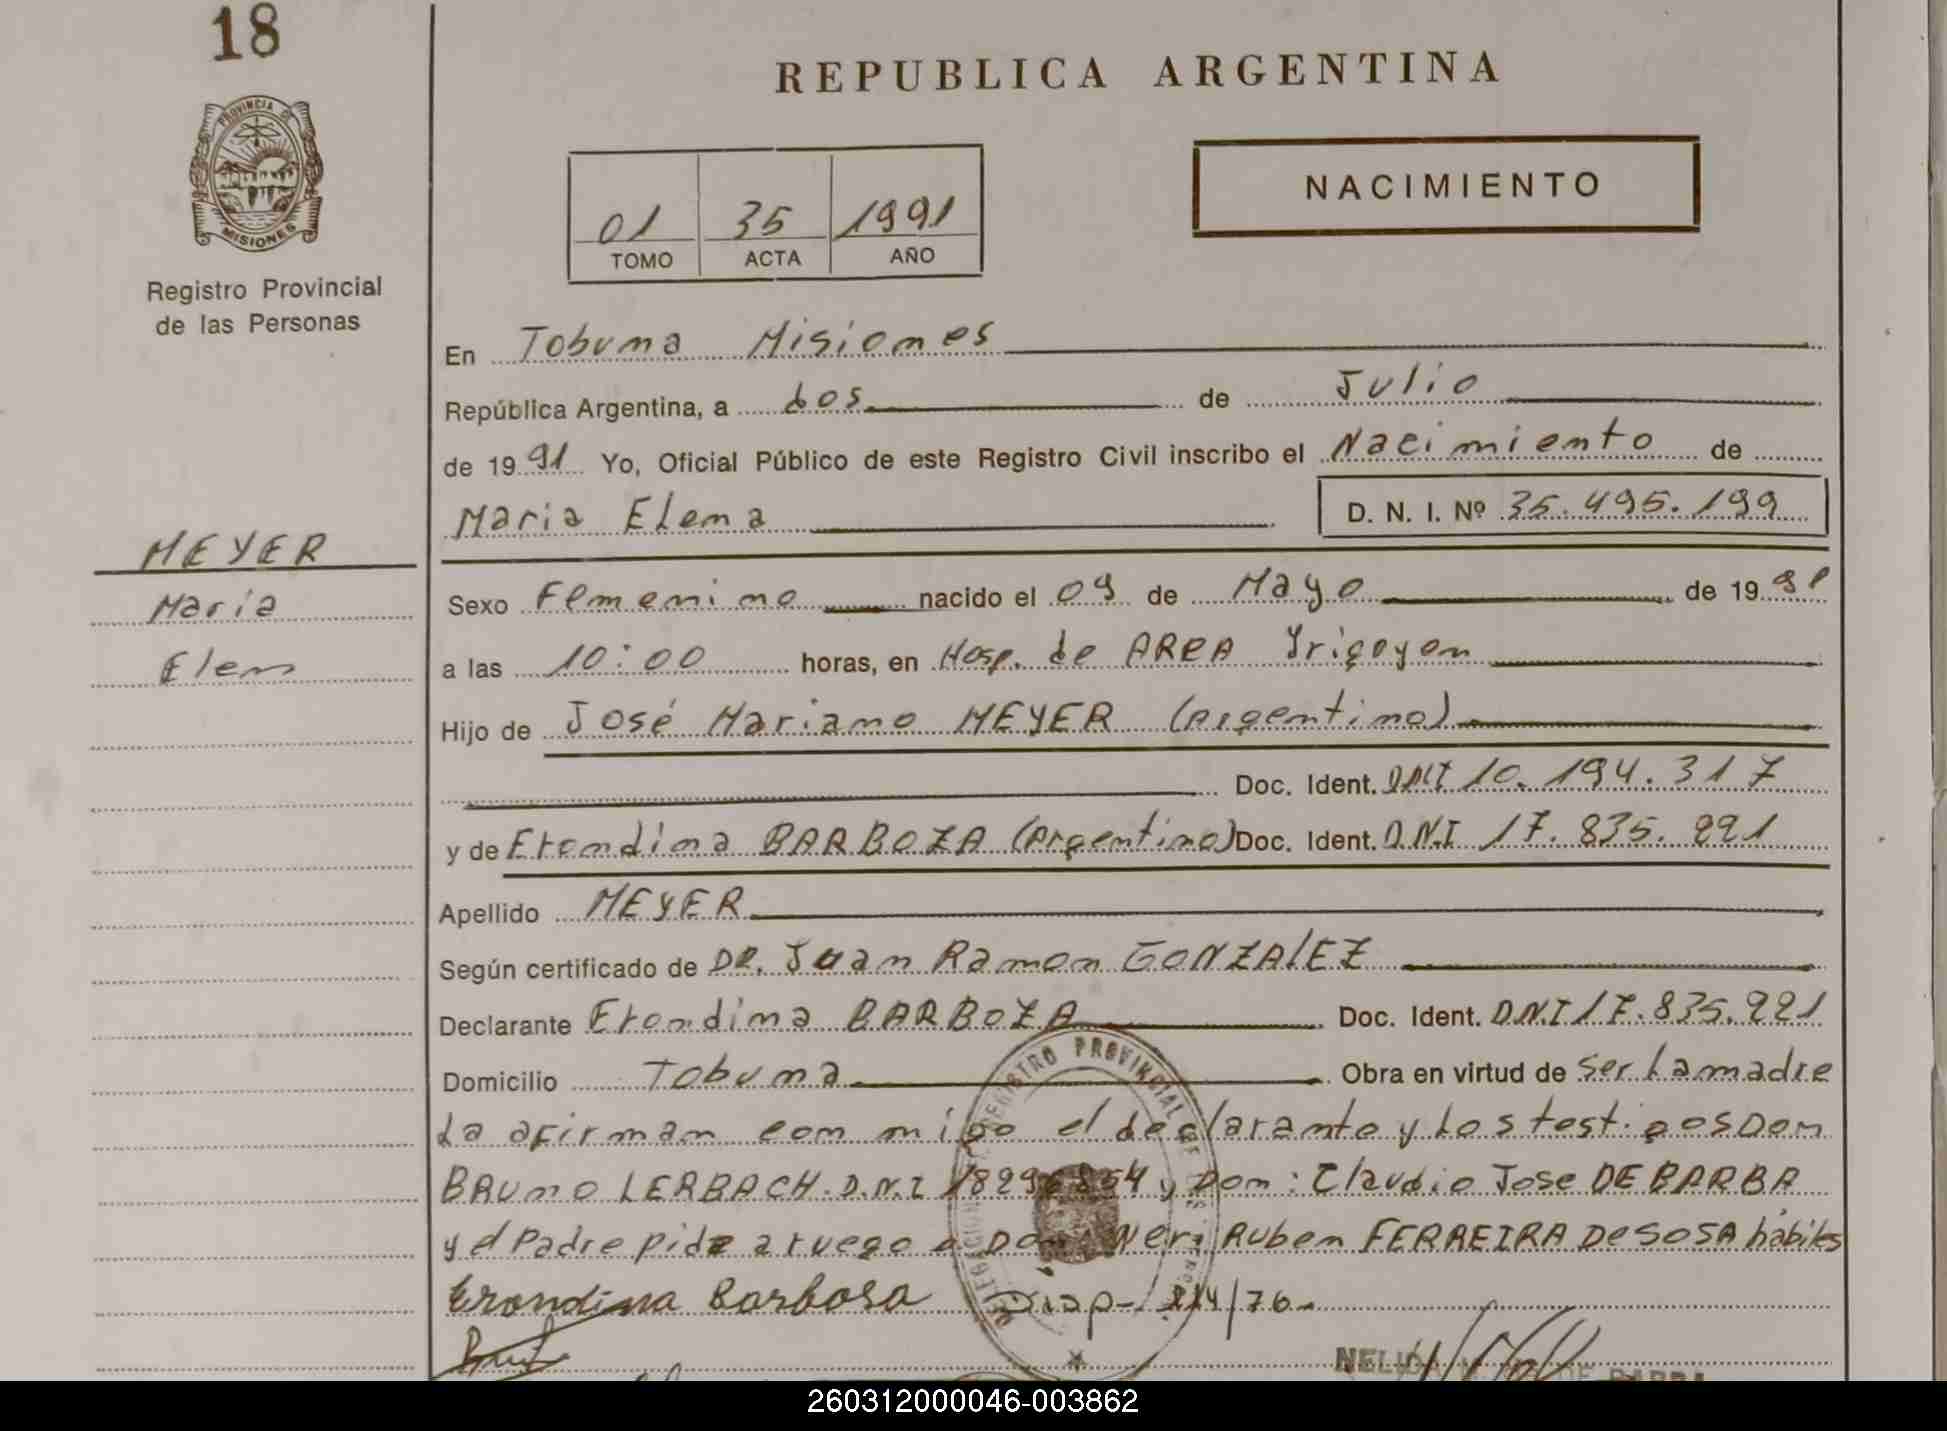 18
REPUBLICA ARGENTINA
PROVINCIA DE
MISIONES
NACIMIENTO
01 35 1991
TOMO ACTA AÑO
Registro Provincial
de las Personas
En Tobuna Misiones
República Argentina, a dos de Julio
de 1991 Yo, Oficial Público de este Registro Civil inscribo el Nacimiento de
Maria Elena D. N. I. Nº 35.495.199
MEYER
Maria
Elena
Sexo Femenino nacido el 09 de Mayo de 1991
a las 10:00 horas, en Hosp. de AREA Yrigoyen
Hijo de José Mariano MEYER (Argentino)
Doc. Ident. DNI 10.194.317
y de Erondina BARBOZA (Argentina) Doc. Ident. D.N.I 17.835.221
Apellido MEYER
Según certificado de DR. Juan Ramon GONZALEZ
Declarante Erondina BARBOZA Doc. Ident. D.N.I 17.835.221
Domicilio Tobuna Obra en virtud de ser La madre
La afirman con migo el declarante y Los testigos Don
BRUNO LERBACH. D.N.I y Don: Claudio Jose DE BARBA
y el Padre pide a ruego a Don Neri Ruben FERREIRA De SOSA hábiles
Erondina Barbosa Disp- 214/76-
REGISTRO PROVINCIAL DE LAS
NELIDA DE BARBA
260312000046-003862